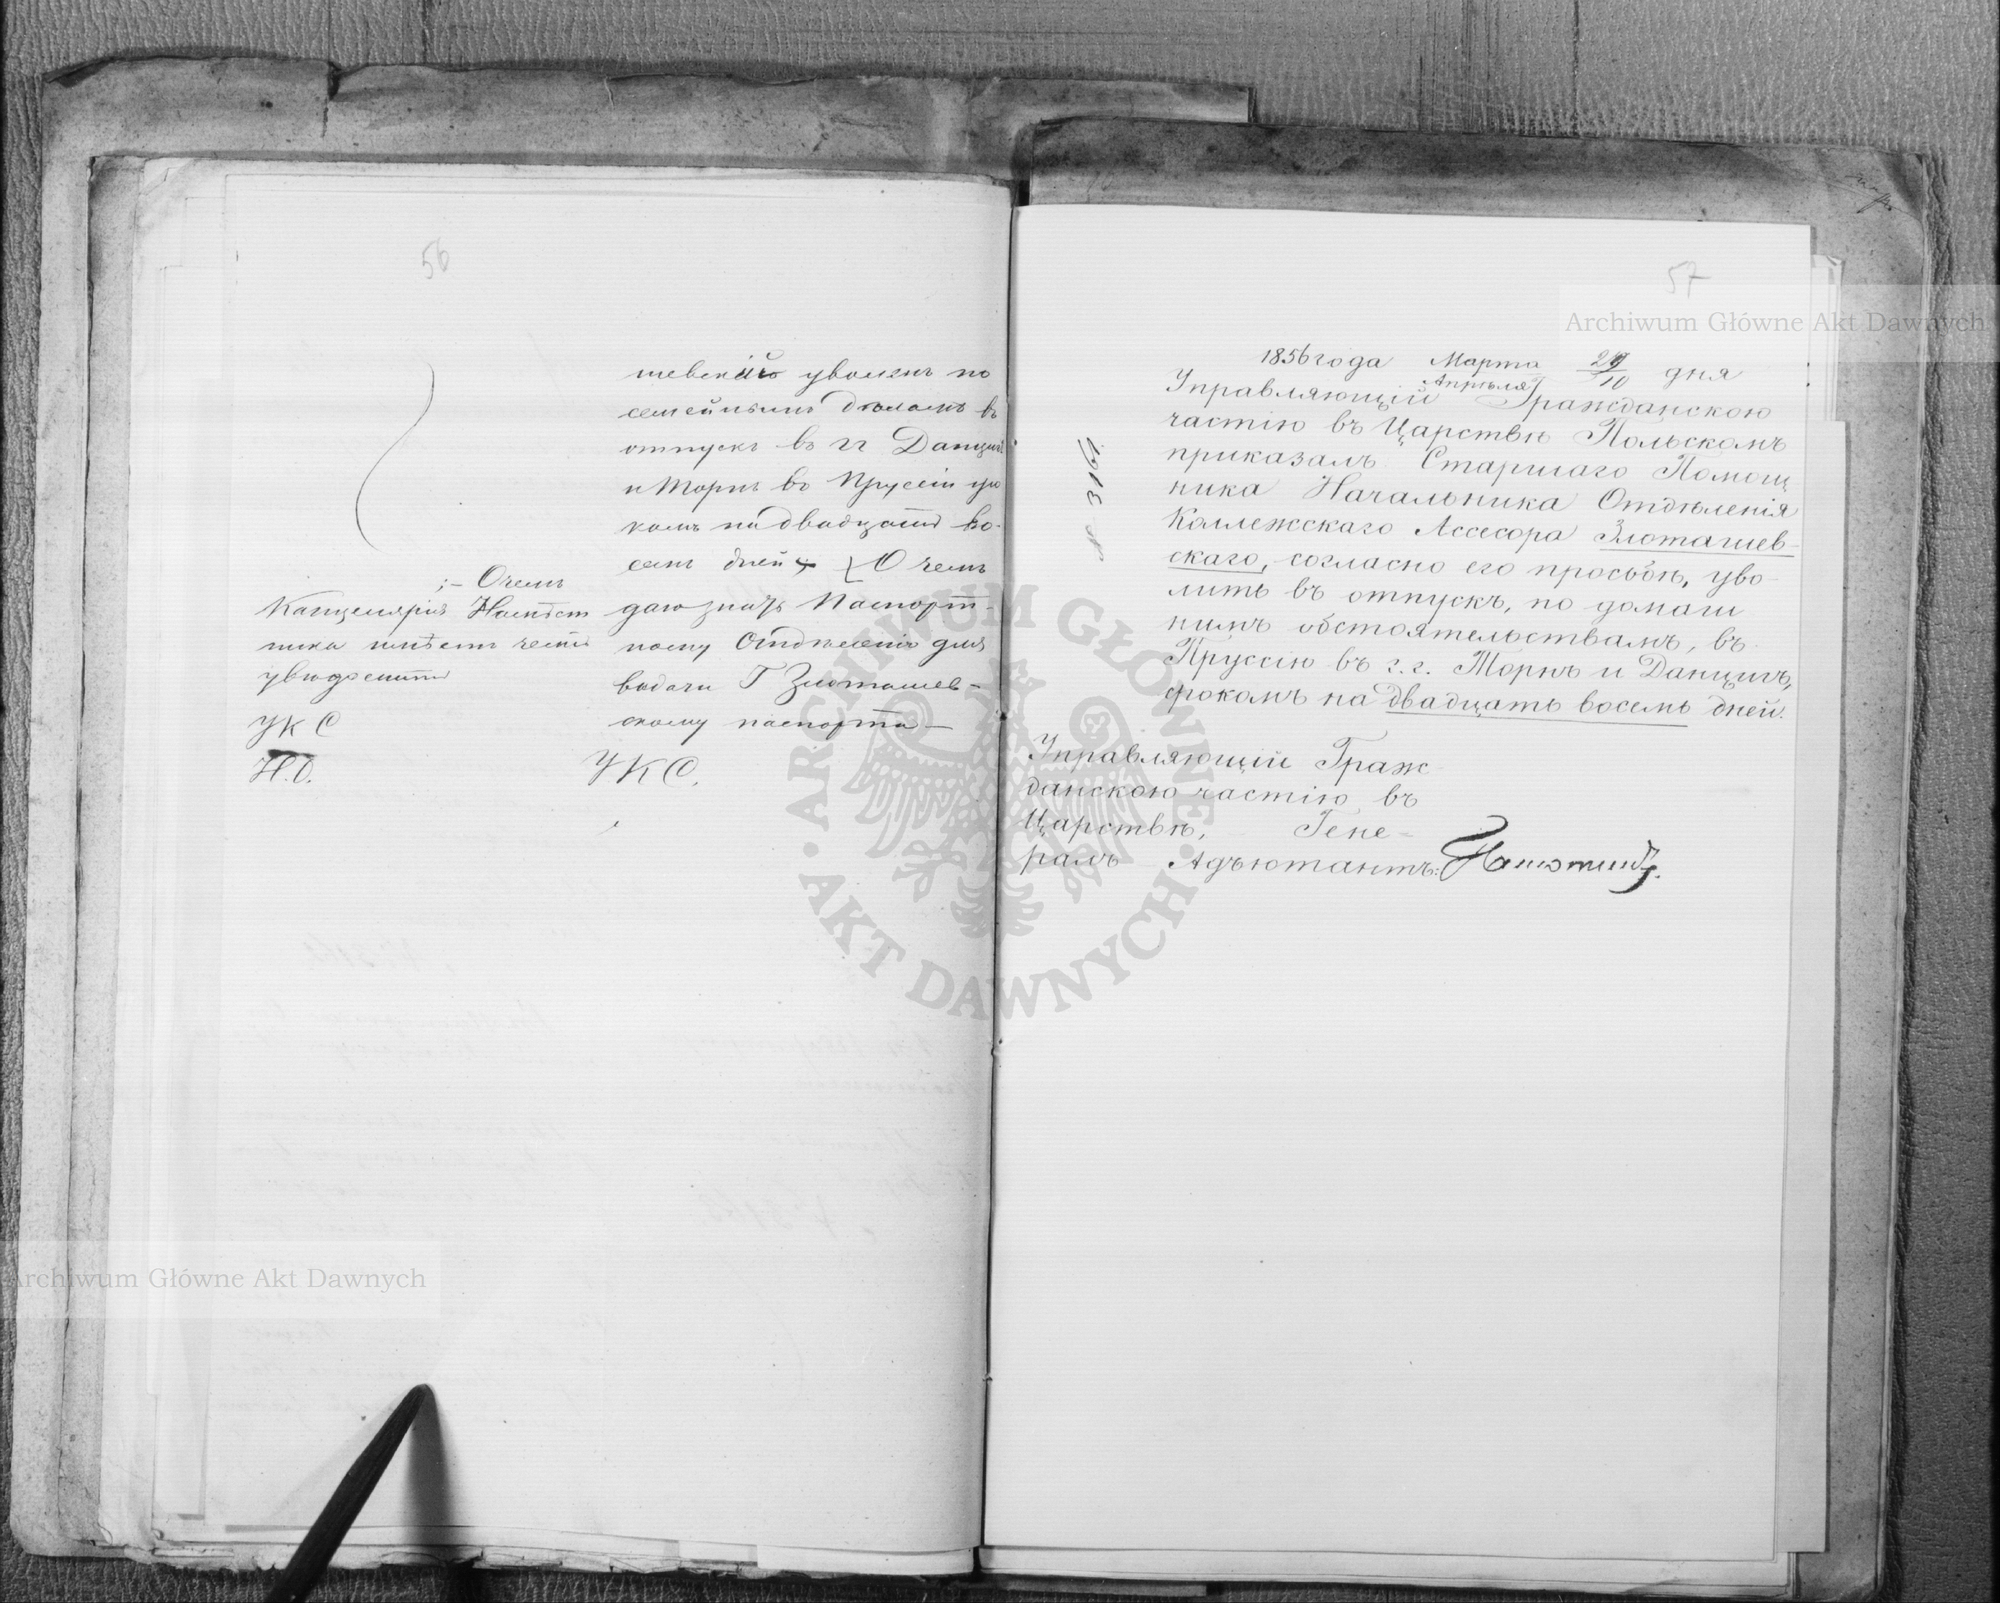 56
шевскій уволенъ по
семейнымъ дѣламъ въ
отпускъ въ гг Данцигъ
и Торнъ въ Пруссіи сро
комъ на двадцать во-
семь дней О чемъ
даю знать Паспорт-
ному Отдѣленію для
выдачи Г Злоташев-
скому паспорта —
УКС.
;- О чемъ
Канцелярія Намѣст
ника имѣетъ честь
увѣдомить
УКС
Н.О.
57
1856 года Марта 29 дня
Апрѣля 10
Управляющій Гражданскою
частію въ Царствѣ Польскомъ
приказалъ Старшаго Помощ
ника Начальника Отдѣленія
Коллежскаго Ассесора Злоташев-
скаго, согласно его просьбѣ, уво-
лить въ отпускъ, по домаш
нимъ обстоятельствамъ, въ
Пруссію въ г.г. Торнъ и Данцигъ,
срокомъ на двадцать восемь дней.
Управляющій Граж-
данскою частію въ
Царствѣ, Гене-
ралъ Адъютантъ:
№ 3167
Archiwum Główne Akt Dawnych
Archiwum Główne Akt Dawnych
ARCHIWUM GŁÓWNE
AKT DAWNYCH